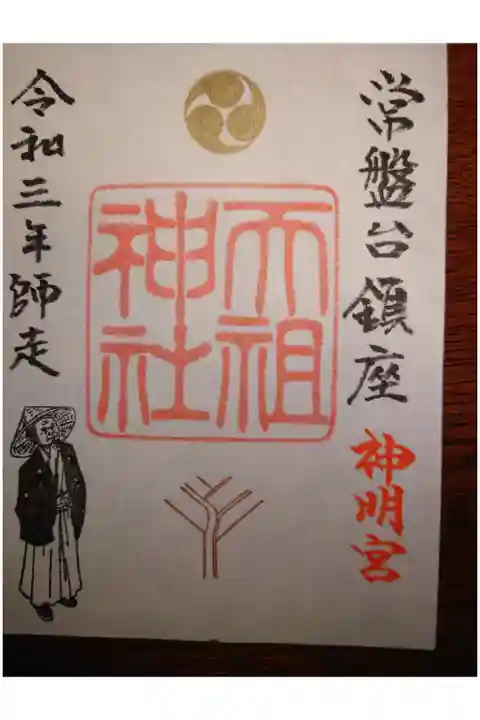 常盤台鎮座 神明宮
天祖
神社
令和三年師走